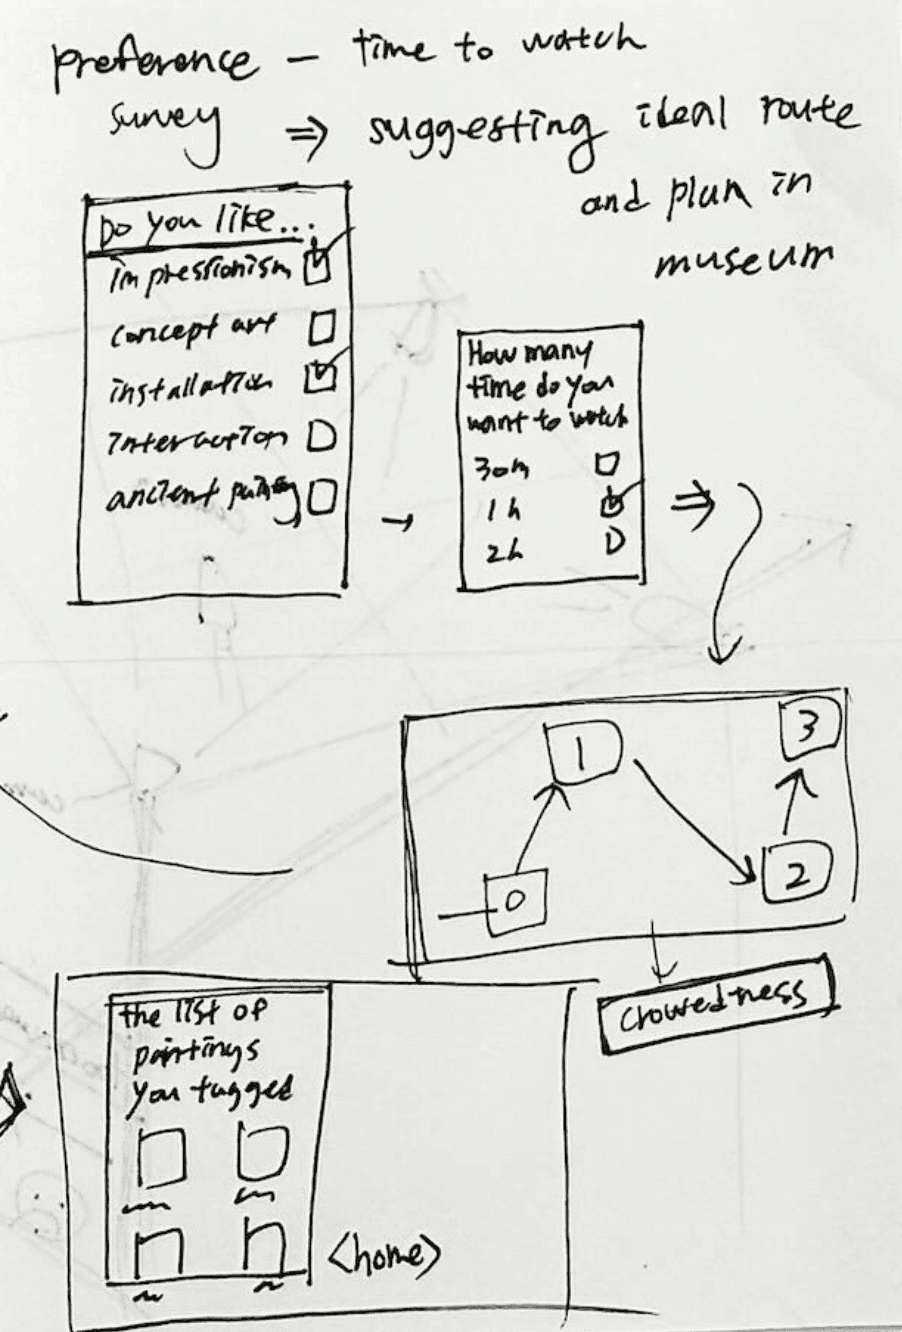 preference - time to watch
survey ⇒ suggesting ideal route
and plan in
museum
Do you like...
impressionism
concept art
installation
Interaction
ancient painting
→
How many
time do you
want to watch
30m
1h
2h
⇒
1
3
0
2
crowedness
the list of
paintings
you tagged
<home>